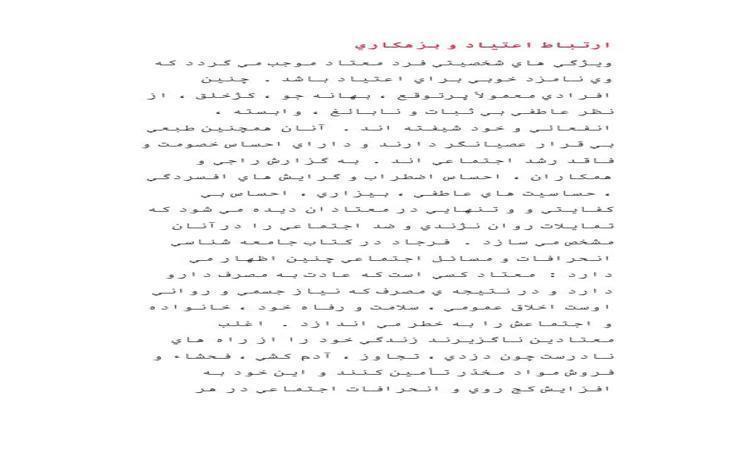 ارتباط اعتیاد و بزهکاري
ویژگي هاي شخصیتي فرد معتاد موجب مي گردد که
وي نامزد خوبي براي اعتیاد باشد . چنین
افرادي معمولاً پرتوقع ، بهانه جو ، کژخلق ، از
نظر عاطفي بي ثبات و نابالغ ، وابسته ،
انفعالي و خود شیفته اند . آنان همچنین طبعي
بي قرار عصیانگر دارند و داراي احساس خصومت و
فاقد رشد اجتماعي اند . به گزارش راجي و
همکاران ، احساس اضطراب و گرایش هاي افسردگي
، حساسیت هاي عاطفي ، بیزاري ، احساس بي
کفایتي و و تنهایي در معتادان دیده مي شود که
تمایلات روان نژندي و ضد اجتماعي را درآنان
مشخص مي سازد . فرجاد در کتاب جامعه شناسي
انحرافات و مسائل اجتماعي چنین اظهار مي
دارد : معتاد کسي است که عادت به مصرف دارو
دارد و در نتیجه ي مصرف که نیاز جسمي و رواني
اوست اخلاق عمومي ، سلامت و رفاه خود ، خانواده
و اجتماعش را به خطر مي اندازد . اغلب
معتادین ناگزیرند زندگي خود را از راه هاي
نادرست چون دزدي ، تجاوز ، آدم کشي ، فحشاء و
فروش مواد مخدر تأمین کنند و این خود به
افزایش کج روي و انحرافات اجتماعي در هر